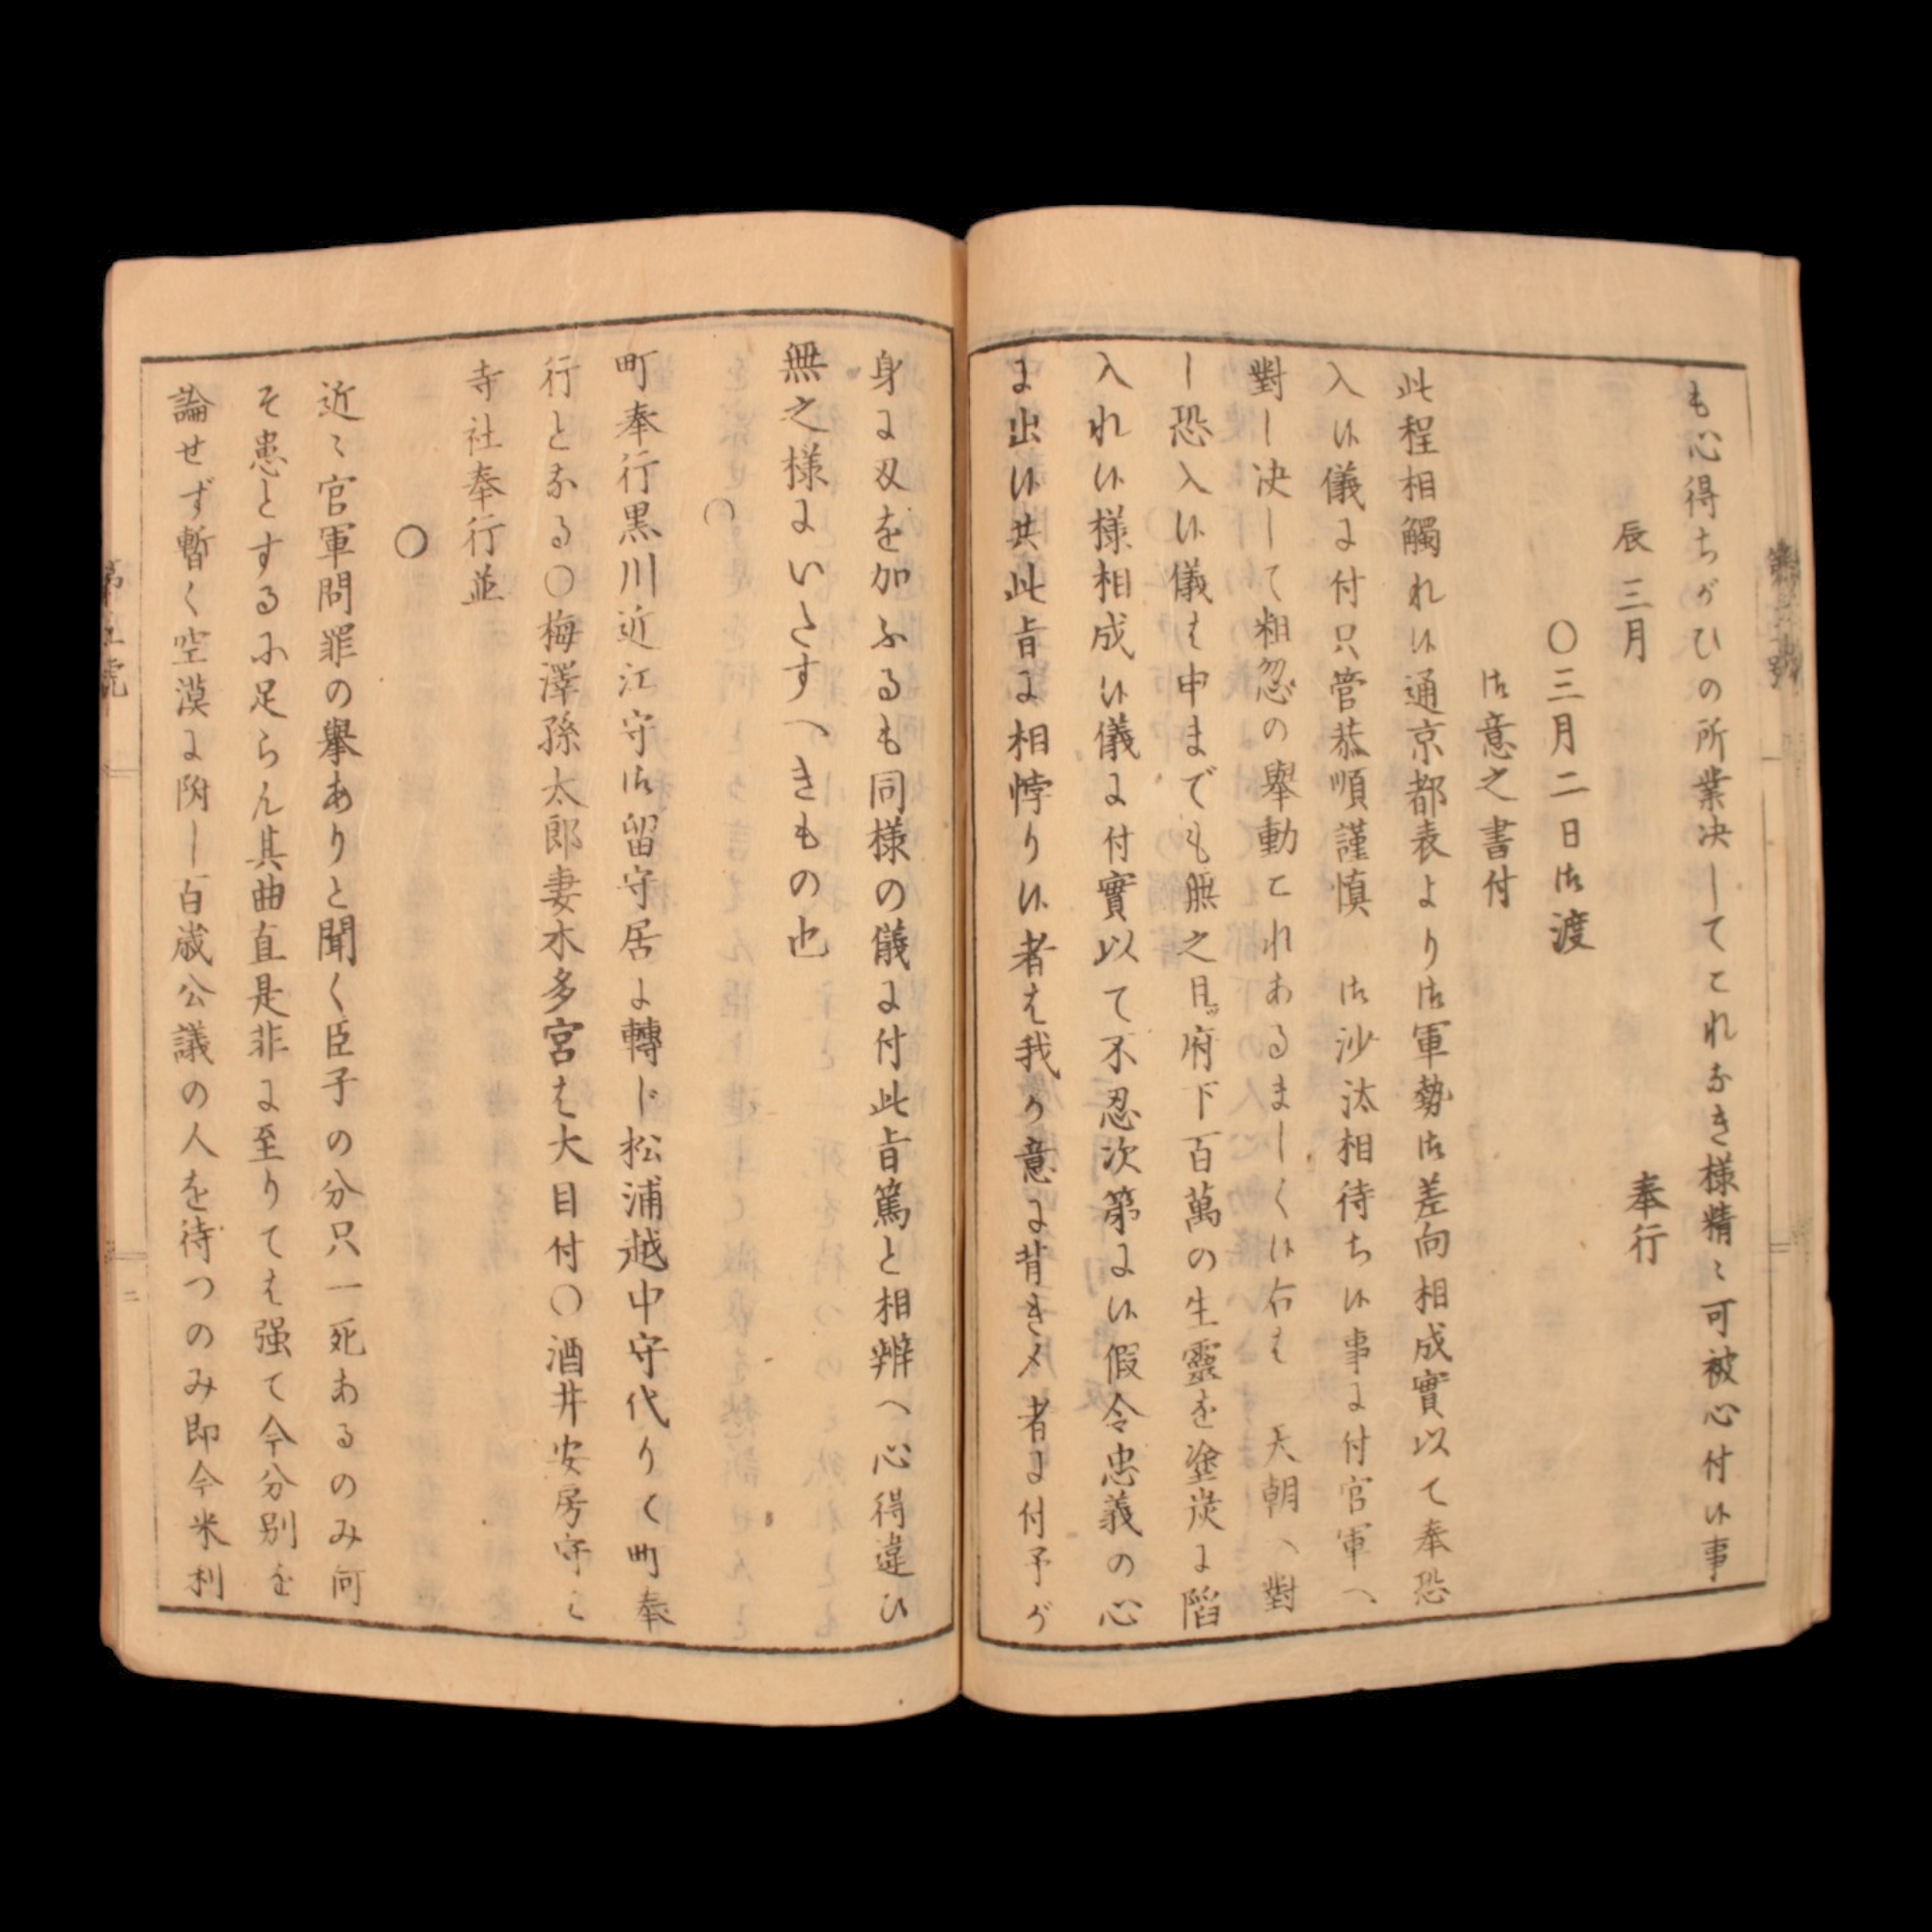 も心得ちがひの所業决してこれなき様精〻可被心付候事
辰三月　奉行
〇三月二日御渡
御意之書付
此程相觸れ候通京都表より御軍勢御差向相成實以て奉恐
入候儀に付只管恭順謹慎　御沙汰相待ち候事に付官軍へ
對し决して粗忽の舉動これあるまじく候右は　天朝へ對
し恐入候儀は申までも無之且府下百萬の生靈を塗炭に陷
入れ候様相成候儀に付實以て不忍次第に候假令忠義の心
に出候共此旨に相悖り候者は我が意に背き〆者に付予が
身に刄を加ふるも同様の儀に付此旨篤と相辨へ心得違ひ
無之様にいたすへきもの也
〇
町奉行黒川近江守御留守居に轉じ松浦越中守代りて町奉
行となる〇梅澤孫太郎妻木多宮は大目付〇酒井安房守は
寺社奉行並
〇
近〻官軍問罪の擧ありと聞く臣子の分只一死あるのみ何
そ患とするに足らん其曲直是非に至りては强て今分別を
論せず暫く空漠に附し百歳公議の人を待つのみ即今米利
第五號
二